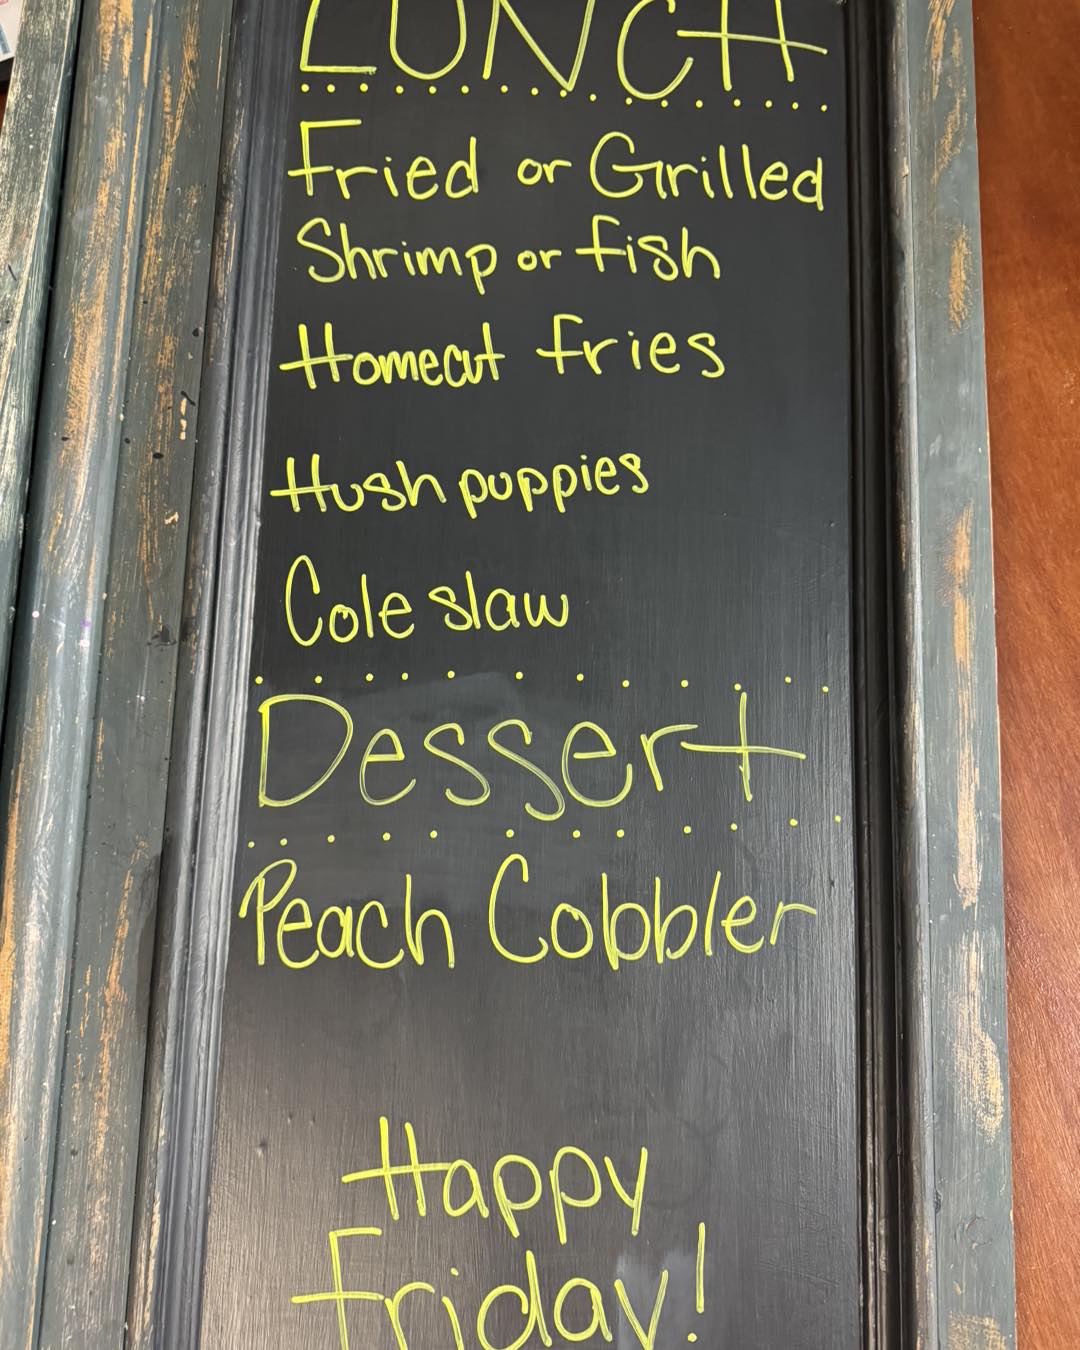 LUNCH
Fried or Grilled
Shrimp or fish
Homecut fries
Hush puppies
Cole slaw
Dessert
Peach Cobbler
Happy
Friday!